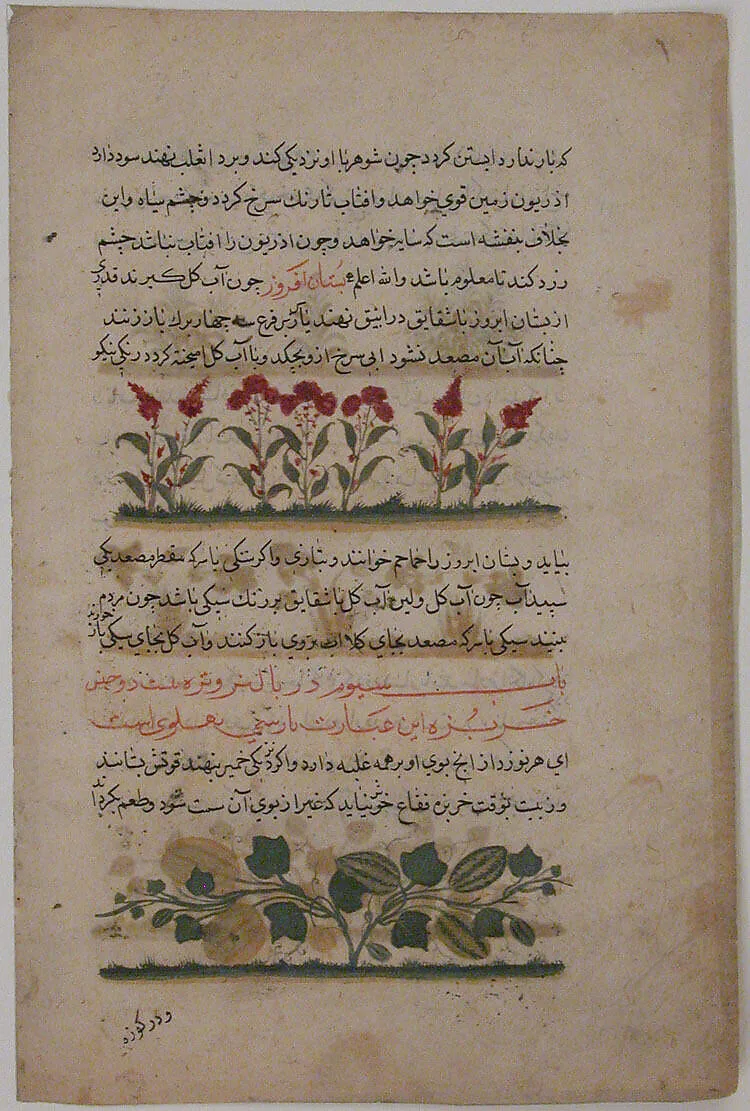 که بار ندارد ابستن کردد چون شوهر با او نزدیکی کند و برد ا ثعلب نهند سود دارد
اذریون زمین قوی خواهد و افتاب تا رنك سرخ کردد و چشم سیاه و این
بخلاف بنفشه است که سایه خواهد و چون اذریون را افتاب نباشد چشم
زرد کند تا معلوم باشد والله اعلم بستان افروز چون آب کل کیرند قدری
از بستان ابروز با شقایق در انبیق نهند بر سر قرع سه چهار برك باز زنند
چنانکه آب آن مصعد نشود ابی سرخ از و بچکد و با آب کل امیخته کردد رنکی نیکو
بیاید و بستان ابروز را حماحم خوانند و بتازی و اکر سکی یا سرکه مقطر مصعد یکی
سپید آب چون آب کل و لیس آب کل با شقایق برنك سیکی باشد چون مردم
بینند سیکی یا سرکه مصعد بجای کلاب بروی باز کنند و آب کل بجای سیکی باز خورند
باب سیوم در
خربزه این عبارت پارسی پهلوی است
ای هر نوز داز انج بوی او بر همه غلبه دارد و اکر نزدیکی خمیر بنهند قوتش بستانند
و زیت بوقت خربزه فقاع خوش نیاید که غیر از بوی آن سست شود و طعم بکرداند
و در کوزه